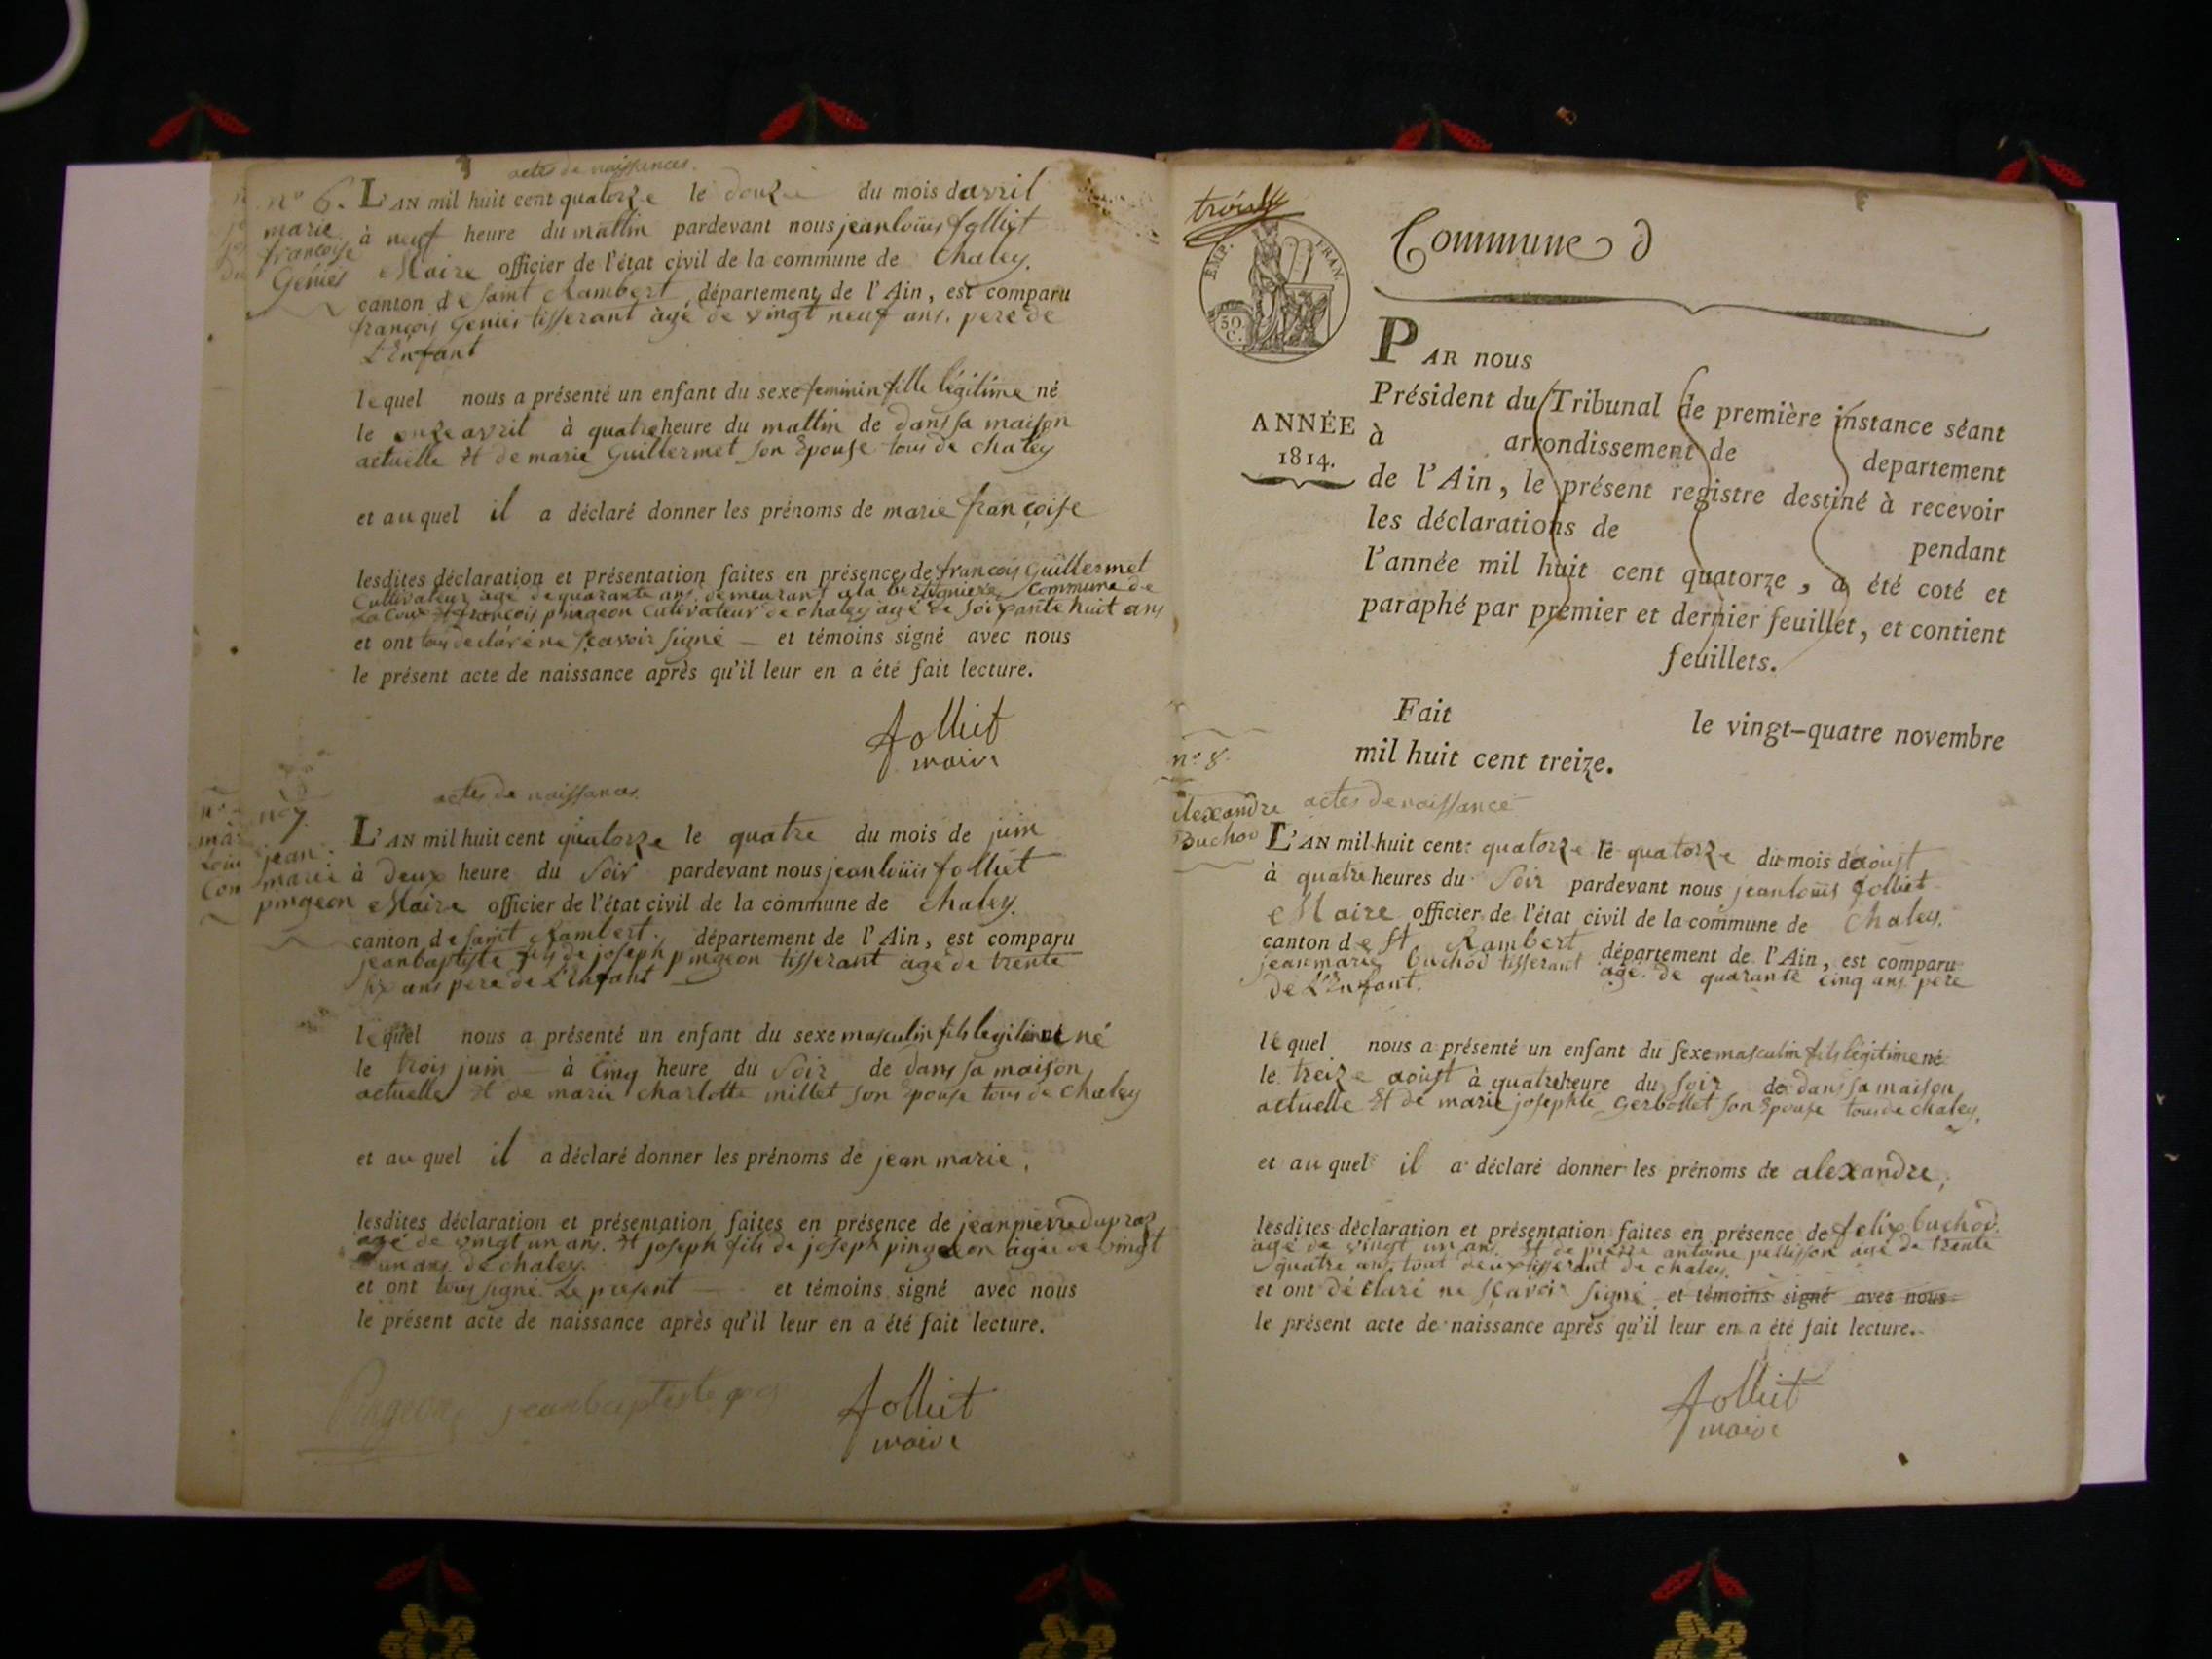 actes de naissances.
n° 6.
marie
françoise
Geniès
L'AN mil huit cent quatorze le douze du mois davril
à neuf heure du mattin pardevant nous jean louis folliet
Maire officier de l'état civil de la commune de Chaley.
canton de Saint Rambert, département de l'Ain, est comparu
françois Geniès tisserant âgé de vingt neuf ans. pere de
L'Enfant
lequel nous a présenté un enfant du sexe feminin fille légitime né
le onze avril à quatre heure du mattin de dans sa maison
actuelle Et de marie Guillermet son Epouse tous de chaley
et auquel il a déclaré donner les prénoms de marie françoise
lesdites déclaration et présentation faites en présence de françois Guillermet
Cultivateur agé de quarante ans demeurant a la Commune de
Et françois pingeon Cultivateur de chaley agé de soixante huit ans
et ont tous declaré ne sçavoir signé — et témoins signé avec nous
le présent acte de naissance après qu'il leur en a été fait lecture.
folliet
maire
actes de naissances.
n° 7.
jean
marie
pingeon
L'AN mil huit cent quatorze le quatre du mois de juin
à Deux heure du Soir pardevant nous jean louis folliet
Maire officier de l'état civil de la commune de Chaley.
canton de saint Rambert, département de l'Ain, est comparu
jean baptiste fils de joseph pingeon tisserant agé de trente
six ans pere de L'Enfant
lequel nous a présenté un enfant du sexe masculin fils legitime né
le trois juin — à Cinq heure du Soir de dans sa maison
actuelle Et de marie charlotte millet son Epouse tous de chaley
et auquel il a déclaré donner les prénoms de jean marie,
lesdites déclaration et présentation faites en présence de jean pierre Dupraz
agé de vingt un ans. Et joseph fils de joseph pingeon agée de vingt
un ans. de chaley.
et ont tous signé Le present — et témoins signé avec nous
le présent acte de naissance après qu'il leur en a été fait lecture.
Pingeon jean baptiste
folliet
maire
EMP. FRAN.
50
C.
Commune d
PAR nous
Président du Tribunal de première instance séant
à arrondissement de departement
de l'Ain, le présent registre destiné à recevoir
les déclarations de pendant
l'année mil huit cent quatorze, a été coté et
paraphé par premier et dernier feuillet, et contient
feuillets.
ANNÉE
1814.
Fait le vingt-quatre novembre
mil huit cent treize.
n° 8.
alexandre
Buchod
actes de naissance
L'AN mil huit cent quatorze le quatorze du mois daoust
à quatre heures du Soir pardevant nous jean louis folliet
Maire officier de l'état civil de la commune de Chaley.
canton de St Rambert département de l'Ain, est comparu
jean marie buchod tisserant agé de quarante cinq ans pere
de L'Enfant.
lequel nous a présenté un enfant du sexe masculin fils légitime né
le treize aoust à quatre heure du soir de dans sa maison
actuelle Et de marie josephte Gerbollet son Epouse tous de chaley,
et auquel il a déclaré donner les prénoms de alexandre,
lesdites déclaration et présentation faites en présence de felix buchod.
agé de vingt un ans. Et de pierre antoine pellisson agé de trente
quatre ans tout deux tisserant de chaley.
et ont déclaré ne sçavoir signé et témoins signé avec nous
le présent acte de naissance après qu'il leur en a été fait lecture.
folliet
maire